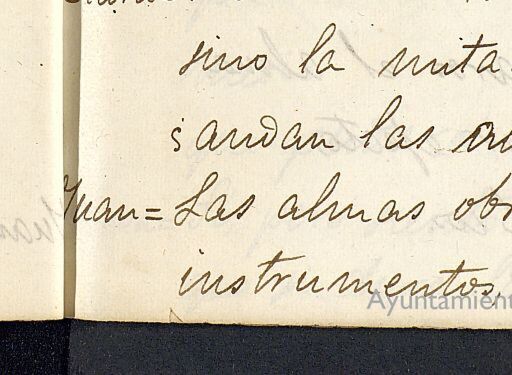 sino la mita
¿andan las
Juan = Las almas
instrumentos.
Ayuntamient